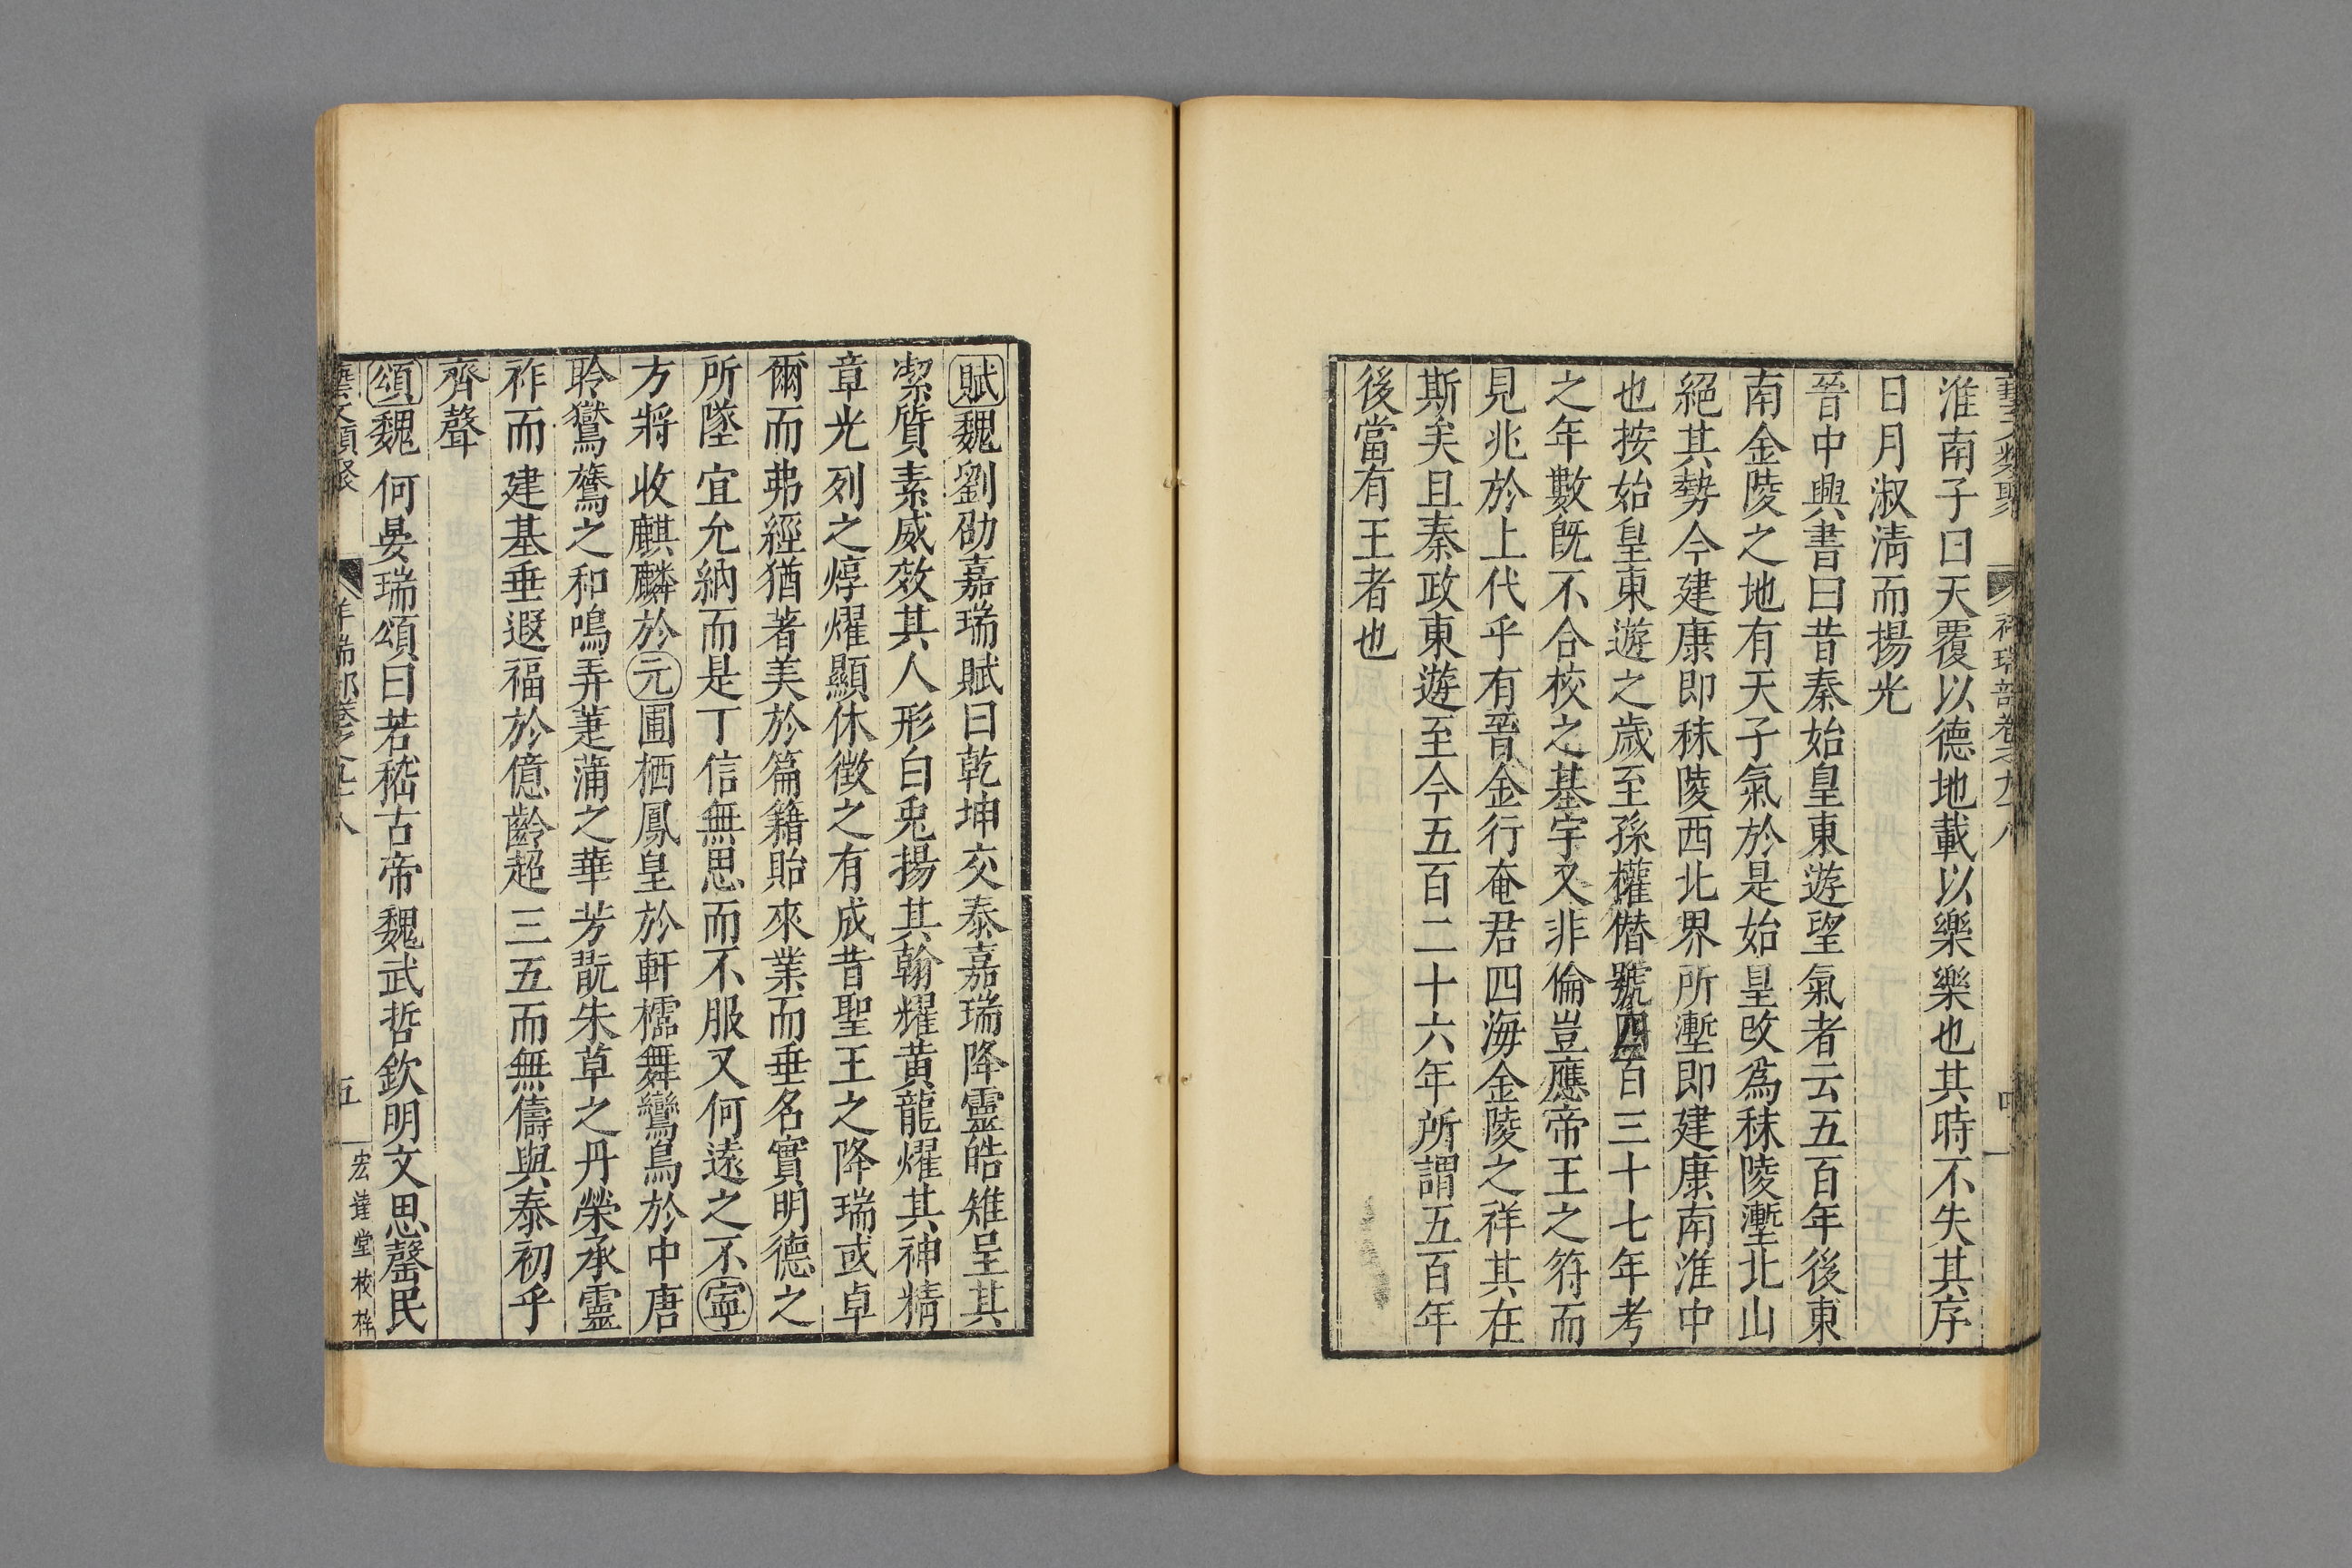 淮南子曰天覆以德地載以樂樂也其時不失其序
日月淑清而揚光
晉中興書曰昔秦始皇東遊望氣者云五百年後東
南金陵之地有天子氣於是始皇改為秣陵塹北山
絕其勢今建康即秣陵西北界所塹即建康南淮中
也按始皇東遊之歲至孫權僭號四百三十七年考
之年數既不合校之基宇又非倫豈應帝王之符而
見兆於上代乎有晉金行奄君四海金陵之祥其在
斯矣且秦政東遊至今五百二十六年所謂五百年
後當有王者也
賦魏劉劭嘉瑞賦曰乾坤交泰嘉瑞降靈皓雉呈其
潔質素威效其人形白兎揚其翰耀黃龍燿其神精
章光列之焞燿顯休徵之有成昔聖王之降瑞或卓
爾而弗經猶著美於篇籍貽來業而垂名實明德之
所墜宜允納而是丁信無思而不服又何遠之不寧
方將收麒麟於元圃栖鳳皇於軒櫺舞鸞鳥於中唐
聆鸑鷟之和鳴弄萐蒲之華芳翫朱草之丹榮承靈
祚而建基垂遐福於億齡超三五而無儔與泰初乎
齊聲
頌魏何晏瑞頌曰若嵇古帝魏武哲欽明文思罄民
藝文類聚 祥瑞部卷之九十八 五 宏達堂校梓